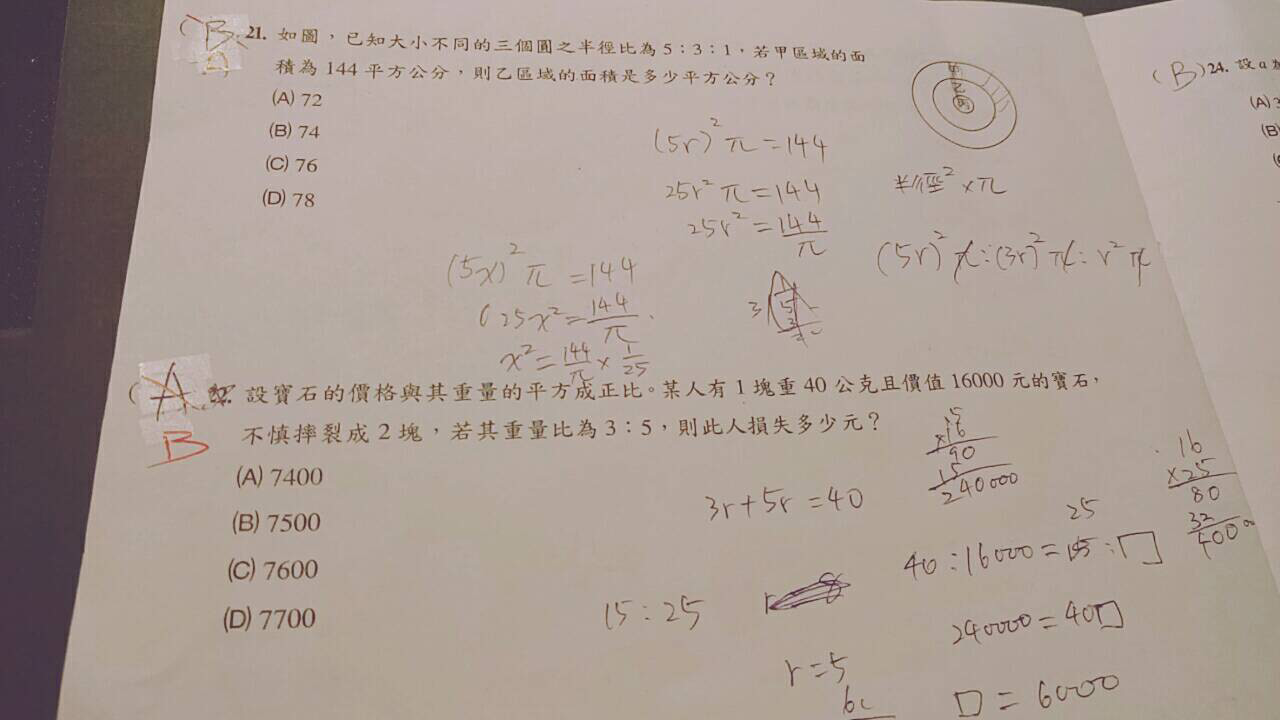 (B) 21. 如圖，已知大小不同的三個圓之半徑比為 5：3：1，若甲區域的面
積為 144 平方公分，則乙區域的面積是多少平方公分？
(A) 72
(B) 74
(C) 76
(D) 78
甲
乙
丙
(5r)² π = 144
25r² π = 144
25r² = 144/π
半徑² × π
(5r)² π : (3r)² π : r² π
(5x)² π = 144
25x² = 144/π
x² = 144/π × 1/25
(A) 22. 設寶石的價格與其重量的平方成正比。某人有 1 塊重 40 公克且價值 16000 元的寶石，
不慎摔裂成 2 塊，若其重量比為 3：5，則此人損失多少元？
B
(A) 7400
(B) 7500
(C) 7600
(D) 7700
3r + 5r = 40
15 : 25
r = 5
15
×16
90
15
240000
16
×25
80
32
25
40 : 16000 = : □
240000 = 40□
□ = 6000
(B) 24. 設 a
(A)
(B)